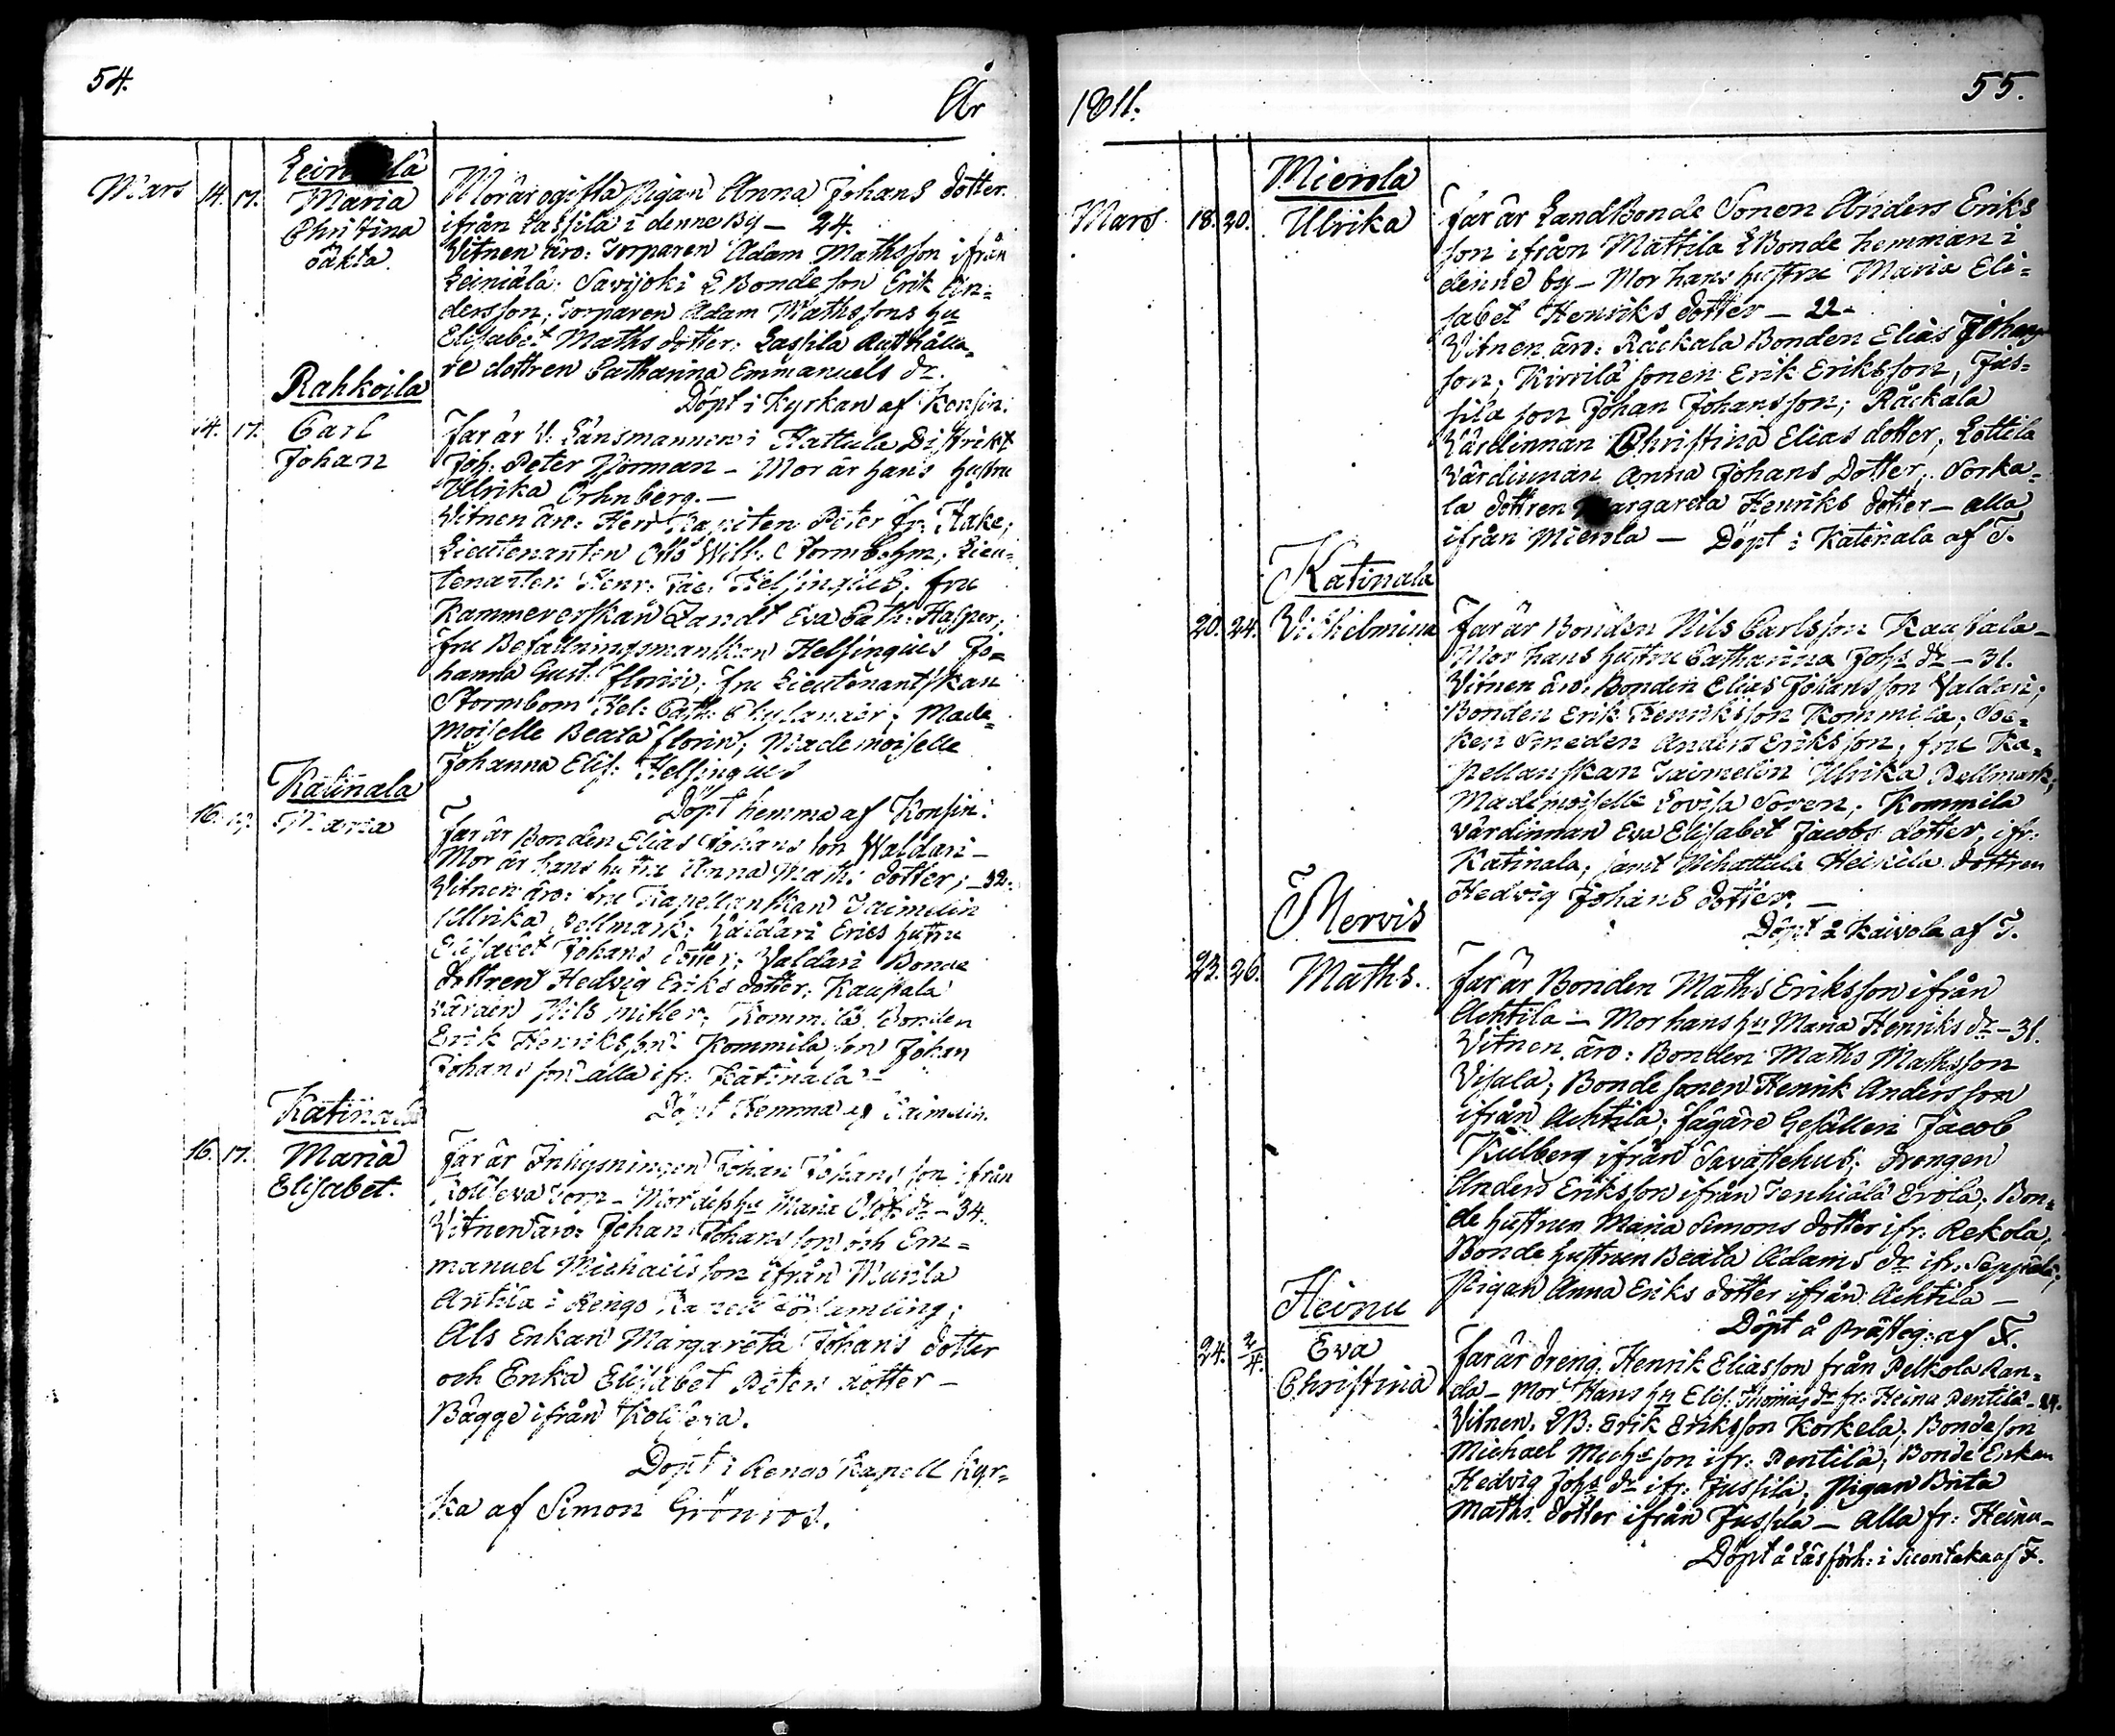 54.
År
Mars 14. 17.
Maria
Christina
oäkta.
Mor är ogifta Pigan Anna Johans dotter
ifrån Lassila i denne By — 24.
Vitnen äro: Torparen Adam Mathsson ifrån
Leiniälä; Savijoki LBonde son Erik An=
dersson; Torparen Adam Mathssons hu
Elisabet Maths dotter; Lassila Rusthålla=
re dottren Catharina Emmanuels dr.
Döpt i Kyrkan af Konsin:
Rahkoila
14. 17. Carl
Johan
Far är V. Länsmannen i Hattula District
Joh: Peter Norman — Mor är hans hustru
Ulrika Orhnberg. —
Vitnen äro: Herr Kapiten Peter fr: Hake;
Lieutenanten Otto Wilh: Stormbohm; Lieu=
tenanten Henr: Helsingius; fru
Kammererskan Zandt Eva Cath: Hasper;
fru Befallningsmanskan Helsingius Jo=
hanna Gust: Florin; fru Lieutenantskan
Stormbom Hel: Cath: Made=
moiselle Beata Florin; Mademoiselle
Johanna Elis: Helsingius
Döpt hemma af Konsin:
Katinala
16. Maria
Far är Bonden Elias Johansson Waldari —
Mor är hans hustru Anna Math: dotter; — 32.
Vitnen äro: fru Kapellanskan Taimelin
Ulrika Pellmark; Valdari Erics hustru
Elisabet Johans dotter; Valdari Bonde
dottren Hedvig Eriks dotter; Kaupala
värden Nils Kommila Bonden
Erik Henriksson; Kommila son Johan
Johansson alla ifr: Katinala —
Döpt hemma af Taimelin.
Katinala
16. 17. Maria
Elisabet.
Far är Inhysningen Johan Johansson ifrån
torp — Mor dess hu Maria dr — 34.
Vitnen äro: Johan Johansson och Em=
manuel Michaelsson ifrån
Anttila i Rengo Kapell församling;
Als Enkan Margareta Johans dotter
och Enka Elisabet Peters dotter —
Bägge ifrån
Döpt i Rengo Kapell Kyr=
ka af Simon Grönroos.
1811.
55.
Mierola
Mars 18. 20. Ulrika
Far är LandBonde Sonen Anders Eriks
son ifrån Mattila LBonde hemman i
denne by — Mor hans hustru Maria Eli=
sabet Henriks dotter — 22.
Vitnen äro: Räckala Bonden Elias Johans
son; Kirrilä sonen Erik Eriksson; Jus=
sila son Johan Johansson; Räckala
Värdinnan Christina Elias dotter; Lottila
Värdinnan Anna Johans Dotter; Sorka=
la dottren Margareta Henriks dotter — alla
ifrån Mierola — Döpt i Katinala af T.
Katinala
20. 24. Vilhelmina
Far är Bonden Nils Carlsson Kaupala —
Mor hans hustru Catharina Johs dr — 31.
Vitnen äro: Bonden Elias Johansson Valdari;
Bonden Erik Henriksson Kommila; Soc=
ken Smeden Anders Eriksson; fru Ka=
pellanskan Taimelin Ulrika Pellmark;
Mademoiselle Lovisa Soren; Kommila
värdinnan Eva Elisabet Jacobs dotter, ifr:
Katinala; samt Nihattula Heikila dottren
Hedvig Johans dotter. —
Döpt å Kaivola af T.
Mervis
23. 26. Maths.
Far är Bonden Maths Eriksson ifrån
Achtila — Mor hans hu Maria Henriks dr — 31.
Vitnen äro: Bonden Maths Mathsson
Visala; Bonde sonen Henrik Andersson
ifrån Achtila; färgare Gesällen Jacob
Kulberg ifrån Tavastehus; Drengen
Anders Eriksson ifrån Tenhiälä Erola; Bon=
de hustrun Maria Simons dotter ifr: Rekola;
Bonde hustrun Beata Adams dr ifr: Seppälä;
Pigan Anna Eriks dotter ifrån Achtila —
Döpt å Prästeg: af F.
Heinu
24. 2/4. Eva
Christina
Far är dreng. Henrik Eliasson från Pelkola Ran=
da — Mor Hans hu Elis: Thomas dr fr: Heinu Pentilä — 24.
Vitnen. LB: Erik Eriksson Korkela; Bonde son
Michael Michs son ifr: Pentilä; Bonde Enkan
Hedvig Johs dr ifr: Jussila; Pigan Brita
Maths dotter ifrån Jussila — Alla fr: Heinu —
Döpt å Läsförh: i af F.